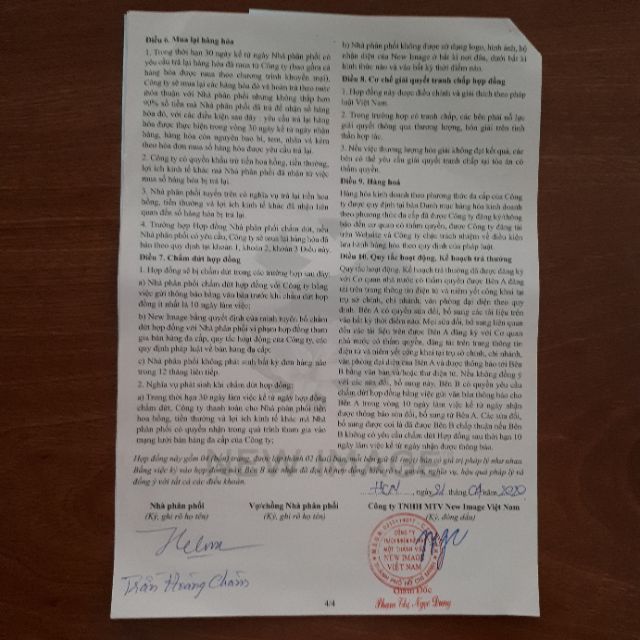 Điều 6. Mua lại hàng hóa
1. Trong thời hạn 30 ngày kể từ ngày Nhà phân phối có
yêu cầu trả lại hàng hóa đã mua từ Công ty (bao gồm cả
hàng hóa được mua theo chương trình khuyến mại),
Công ty sẽ mua lại các hàng hóa đó và hoàn trả theo mức
thỏa thuận với Nhà phân phối nhưng không thấp hơn
90% số tiền mà Nhà phân phối đã trả để nhận số hàng
hóa đó, với các điều kiện sau đây: yêu cầu trả lại hàng
hóa được thực hiện trong vòng 30 ngày kể từ ngày nhận
hàng, hàng hóa còn nguyên bao bì, tem, nhãn và kèm
theo hóa đơn mua số hàng hóa được yêu cầu trả lại.
2. Công ty có quyền khấu trừ tiền hoa hồng, tiền thưởng,
lợi ích kinh tế khác mà Nhà phân phối đã nhận từ việc
mua số hàng hóa bị trả lại.
3. Nhà phân phối tuyến trên có nghĩa vụ trả lại tiền hoa
hồng, tiền thưởng và lợi ích kinh tế khác đã nhận liên
quan đến số hàng hóa bị trả lại.
4. Trường hợp Hợp đồng Nhà phân phối chấm dứt, nếu
Nhà phân phối có yêu cầu, Công ty sẽ mua lại hàng hóa đã
bán theo quy định tại khoản 1, khoản 2, khoản 3 Điều này.
Điều 7. Chấm dứt hợp đồng
1. Hợp đồng sẽ bị chấm dứt trong các trường hợp sau đây:
a) Nhà phân phối chấm dứt hợp đồng với Công ty bằng
việc gửi thông báo bằng văn bản trước khi chấm dứt hợp
đồng ít nhất là 10 ngày làm việc;
b) New Image bằng quyết định của mình tuyên bố chấm
dứt hợp đồng với Nhà phân phối vi phạm hợp đồng tham
gia bán hàng đa cấp, quy tắc hoạt động của Công ty, các
quy định pháp luật về bán hàng đa cấp;
c) Nhà phân phối không phát sinh bất kỳ đơn hàng nào
trong 12 tháng liên tiếp.
2. Nghĩa vụ phát sinh khi chấm dứt hợp đồng:
a) Trong thời hạn 30 ngày làm việc kể từ ngày hợp đồng
chấm dứt, Công ty thanh toán cho Nhà phân phối tiền
hoa hồng, tiền thưởng và lợi ích kinh tế khác mà Nhà
phân phối có quyền nhận trong quá trình tham gia vào
mạng lưới bán hàng đa cấp của Công ty;
b) Nhà phân phối không được sử dụng logo, hình ảnh, bộ
nhận diện của New Image ở bất kì nơi đâu, dưới bất kì
hình thức nào và vào bất kỳ thời điểm nào.
Điều 8. Cơ chế giải quyết tranh chấp hợp đồng
1. Hợp đồng này được điều chỉnh và giải thích theo pháp
luật Việt Nam.
2. Trong trường hợp có tranh chấp, các bên phải nỗ lực
giải quyết thông qua thương lượng, hòa giải trên tinh
thần hợp tác.
3. Nếu việc thương lượng hòa giải không đạt kết quả, các
bên có thể yêu cầu giải quyết tranh chấp tại tòa án có
thẩm quyền.
Điều 9. Hàng hoá
Hàng hóa kinh doanh theo phương thức đa cấp của Công
ty được quy định tại bản Danh mục hàng hóa kinh doanh
theo phương thức đa cấp đã được Công ty đăng ký/thông
báo đến cơ quan có thẩm quyền, được Công ty đăng tải
trên Website và Công ty chịu trách nhiệm về điều kiện
lưu hành hàng hóa theo quy định của pháp luật.
Điều 10. Quy tắc hoạt động, Kế hoạch trả thưởng
Quy tắc hoạt động, Kế hoạch trả thưởng đã được đăng ký
với Cơ quan nhà nước có thẩm quyền được Bên A đăng
tải trên trang thông tin điện tử và niêm yết công khai tại
trụ sở chính, chi nhánh, văn phòng đại diện theo quy
định. Bên A có quyền sửa đổi, bổ sung các tài liệu trên
vào bất kỳ thời điểm nào. Mọi sửa đổi, bổ sung liên quan
đến các tài liệu trên được Bên A đăng ký với Cơ quan
nhà nước có thẩm quyền, đăng tải trên trang thông tin
điện tử và niêm yết công khai tại trụ sở chính, chi nhánh,
văn phòng đại diện của Bên A và được thông báo tới Bên
B bằng văn bản và/hoặc thư điện tử. Nếu không đồng ý
với các sửa đổi, bổ sung này, Bên B có quyền yêu cầu
chấm dứt hợp đồng bằng việc gửi văn bản thông báo cho
Bên A trong vòng 10 ngày làm việc kể từ ngày nhận
được thông báo sửa đổi, bổ sung từ Bên A. Các sửa đổi,
bổ sung được coi là đã được Bên B chấp thuận nếu Bên
B không có yêu cầu chấm dứt Hợp đồng sau thời hạn 10
ngày làm việc kể từ ngày nhận được thông báo.
NEW IMAGE
Hợp đồng này gồm 04 (bốn) trang, được lập thành 02 (hai) bản, mỗi bên giữ một bản có giá trị pháp lý như nhau.
Bằng việc ký vào hợp đồng này, Bên B xác nhận đã đọc kỹ hợp đồng, hiểu rõ nghĩa vụ, hậu quả pháp lý và
đồng ý với tất cả các điều khoản.
HCM, ngày 21 tháng 04 năm 2020
Nhà phân phối
(Ký, ghi rõ họ tên)
Vợ/chồng Nhà phân phối
(Ký, ghi rõ họ tên)
Công ty TNHH MTV New Image Việt Nam
(Ký, đóng dấu)
Trần Hoàng Châm
CÔNG TY
TRÁCH NHIỆM HỮU HẠN
MỘT THÀNH VIÊN
NEW IMAGE
VIỆT NAM
THÀNH PHỐ HỒ CHÍ MINH
Giám Đốc
Phạm Thị Ngọc Dung
4/4